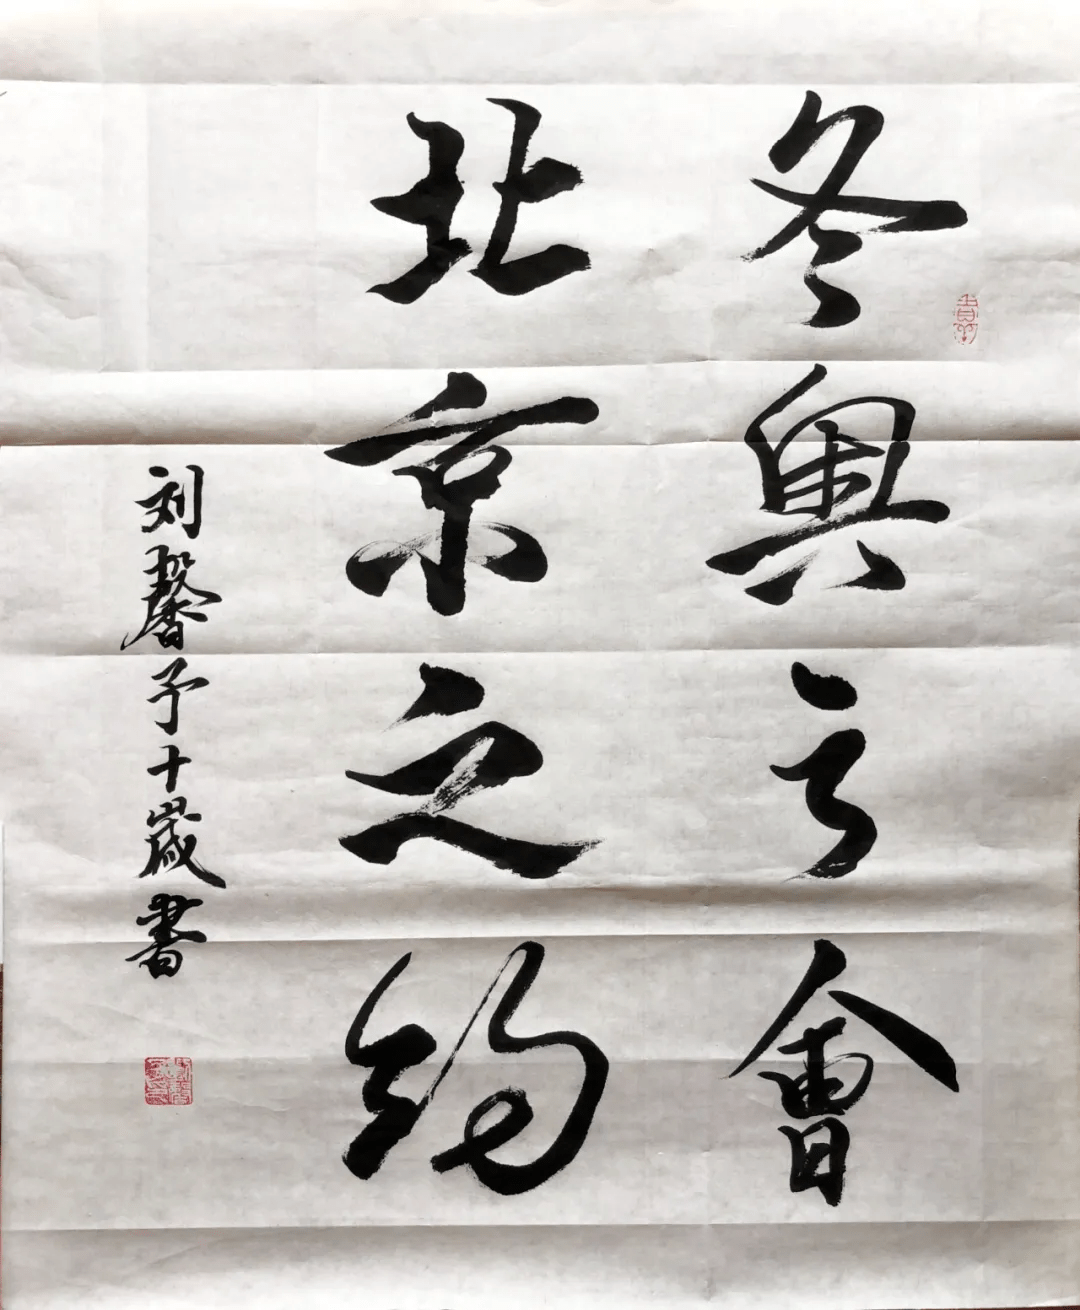 冬奥之會
北京之約
刘馨予十歲書